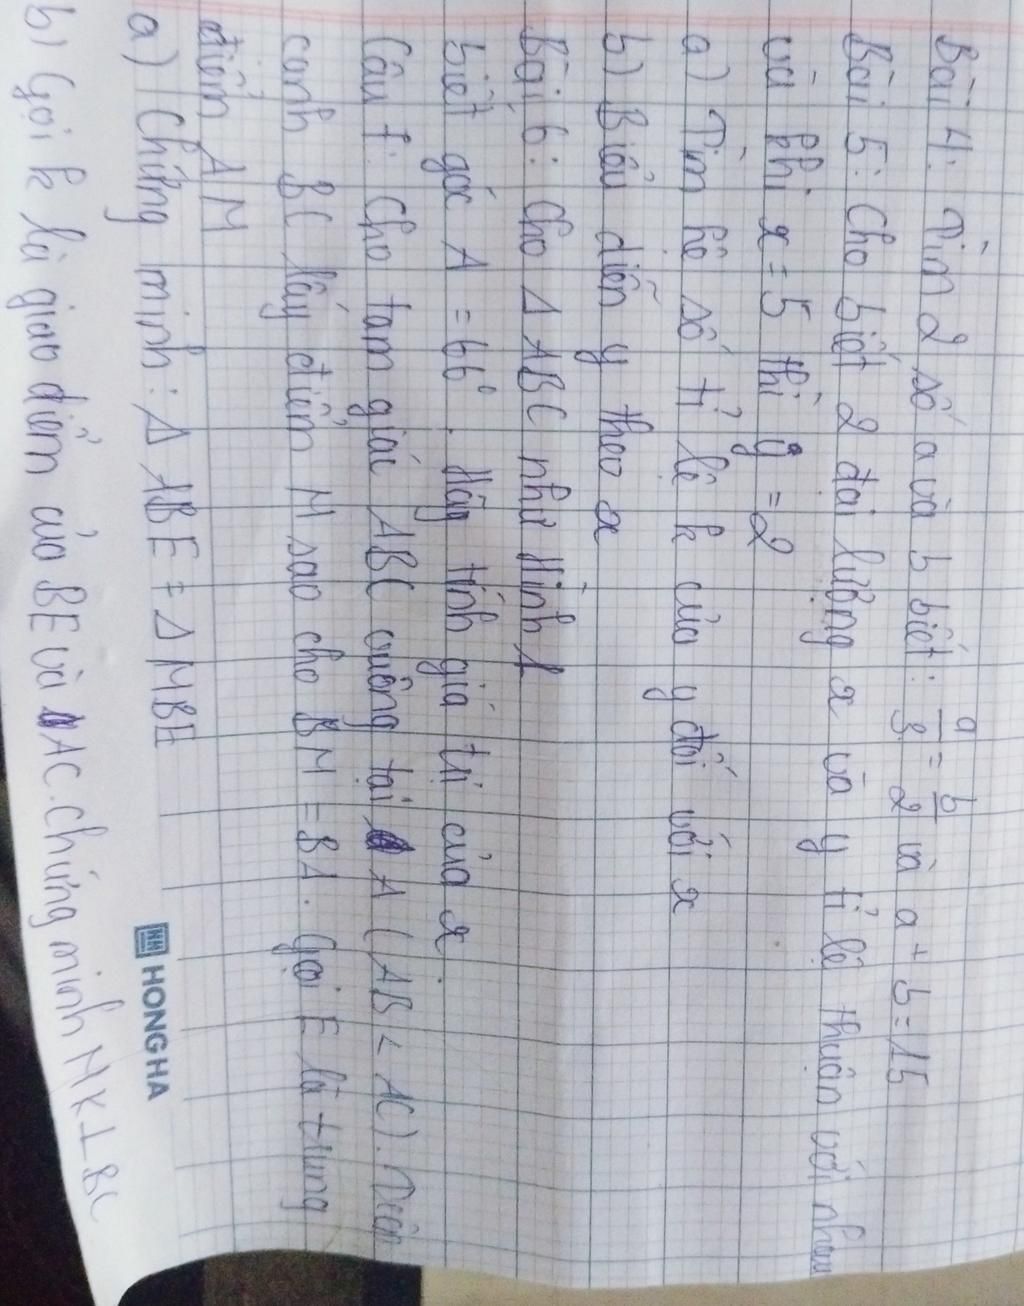 Bài 4: Tìm 2 số a và b biết: a/3 = b/2 và a + b = 15
Bài 5: Cho biết 2 đai lượng x và y tỉ lệ thuận với nhau
và khi x = 5 thì y = 2
a) Tìm hê số tỉ lệ k của y đối với x
b) Biểu diễn y theo x
Bài 6: Cho Δ ABC như Hình 1
biết góc A = 66°. Hãy tính giá trị của x.
Câu 7: Cho tam giác ABC vuông tại A (AB < AC). Trên
canh BC lấy điểm M sao cho BM = BA. Gọi E là trung
điểm AM
a) Chứng minh: Δ ABE = Δ MBE
HONG HA
b) Gọi k là giao điểm của BE và AC. Chứng minh MK ⊥ BC